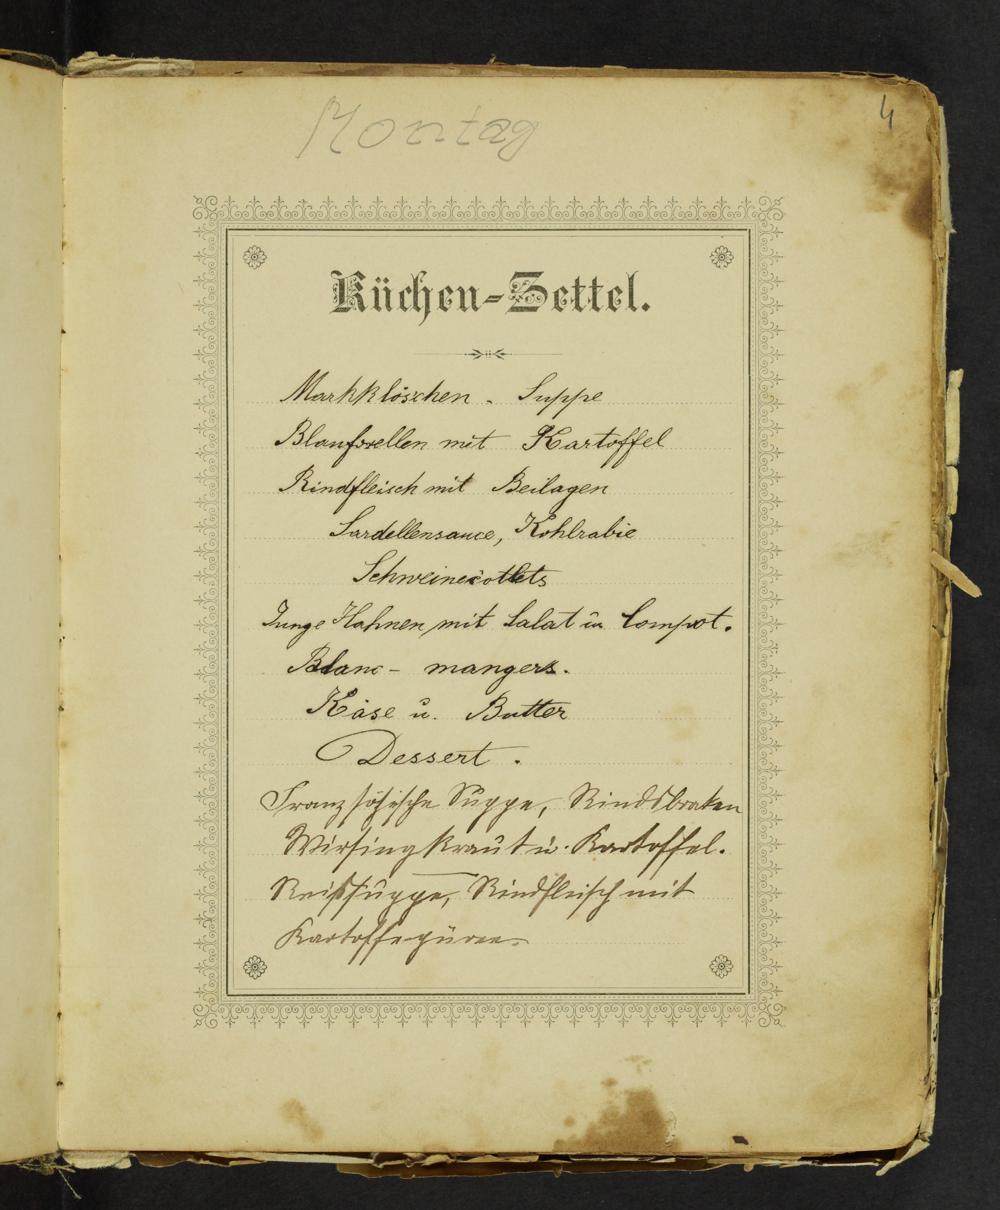 4
Montag
Küchen-Zettel.
Markklöschen - Suppe
Blauforellen mit Kartoffel
Rindfleisch mit Beilagen
Sardellensauce, Kohlrabie
Schweinecotlets
Junge Hahnen mit Salat u Compot.
Blanc- mangers.
Käse u. Butter
Dessert.
Französische Suppe, Rindsbraten
Wirsingkraut u. Kartoffel.
Reißsuppe, Rindfleisch mit
Kartoffepüree